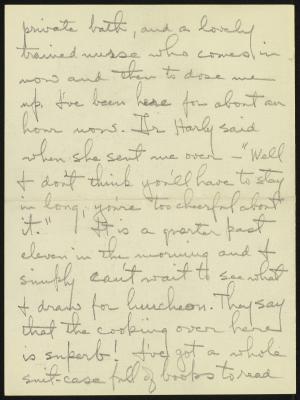 private bath, and a lovely
trained nurse who comes in
now and then to dose me
up. I've been here for about an
hour now. Dr Harly said
when she sent me over - "Well
I don't think you'll have to stay
in long, you're too cheerful about
it." It is a quarter past
eleven in the morning and I
simply can't wait to see what
I draw for luncheon. They say
that the cooking over here
is superb! I've got a whole
suit-case full of books to read